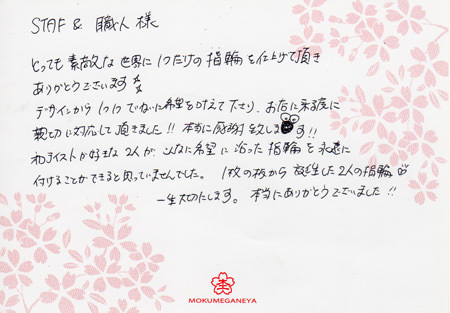 STAFF & 職人 様
とっても素敵な世界に1つだけの指輪を仕上げて頂き
ありがとうございます
デザインから1つ1つていねいに希望を叶えて下さり、お店に来る度に
親切に対応して頂きました!! 本当に感謝致します!!
和テイストが好きな2人が、こんなに希望に沿った指輪を永遠に
付けることができると思っていませんでした。1枚の板から誕生した2人の指輪
一生大切にします。本当にありがとうございました!!
MOKUMEGANEYA